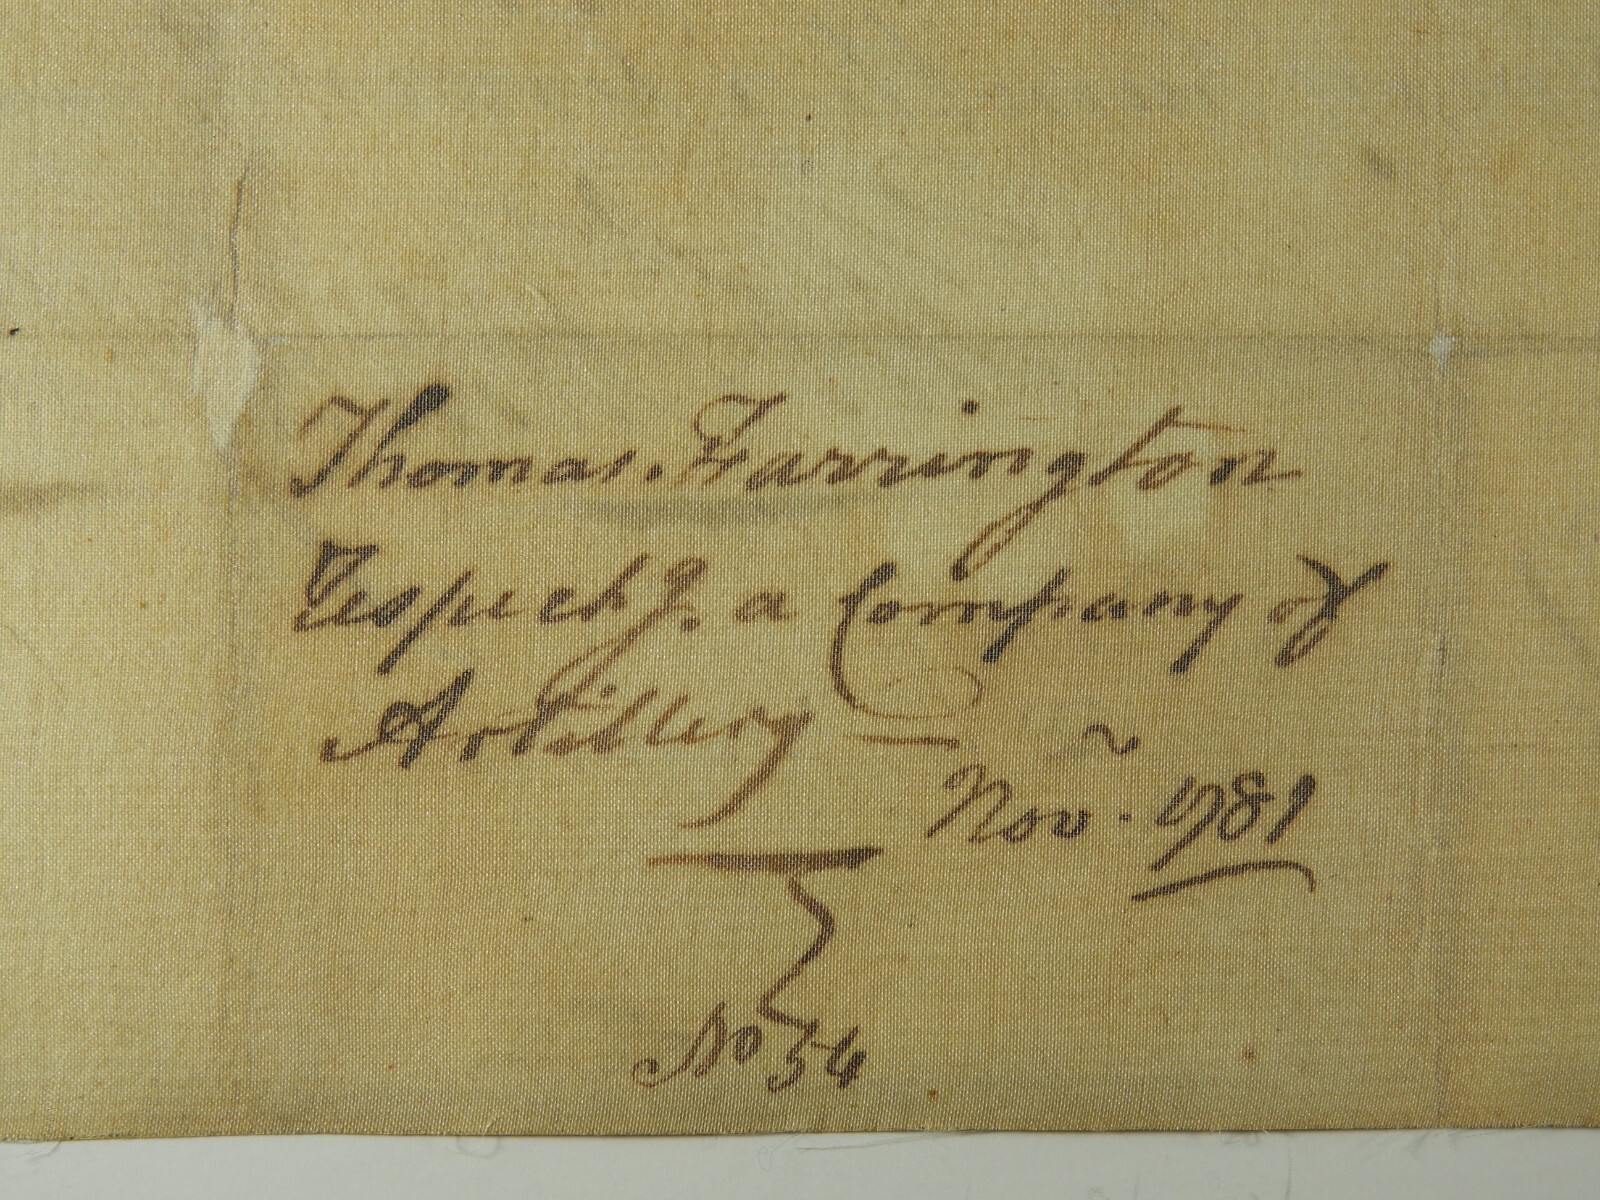 Thomas. Farrington
respectg. a Company of
Artillery —
Nov. 1781
No 54